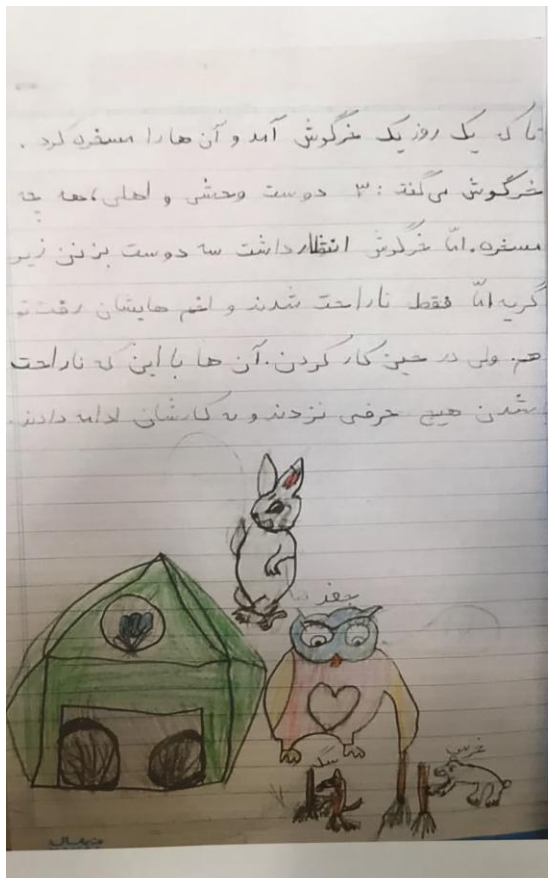 تا که یک روز یک خرگوش آمد و آن ها را مسخره کرد .
خرگوش می گفت : ۳ دوست وحشی و اهلی، هه چه
مسخره. امّا خرگوش انتظار داشت سه دوست بزنن زیر
گریه امّا فقط ناراحت شدند و اخم هایشان رفت تو
هم. ولی در حین کار کردن. آن ها با این که ناراحت
شدن هیچ حرفی نزدند و به کارشان ادامه دادند.
جغد
سگ
خرس